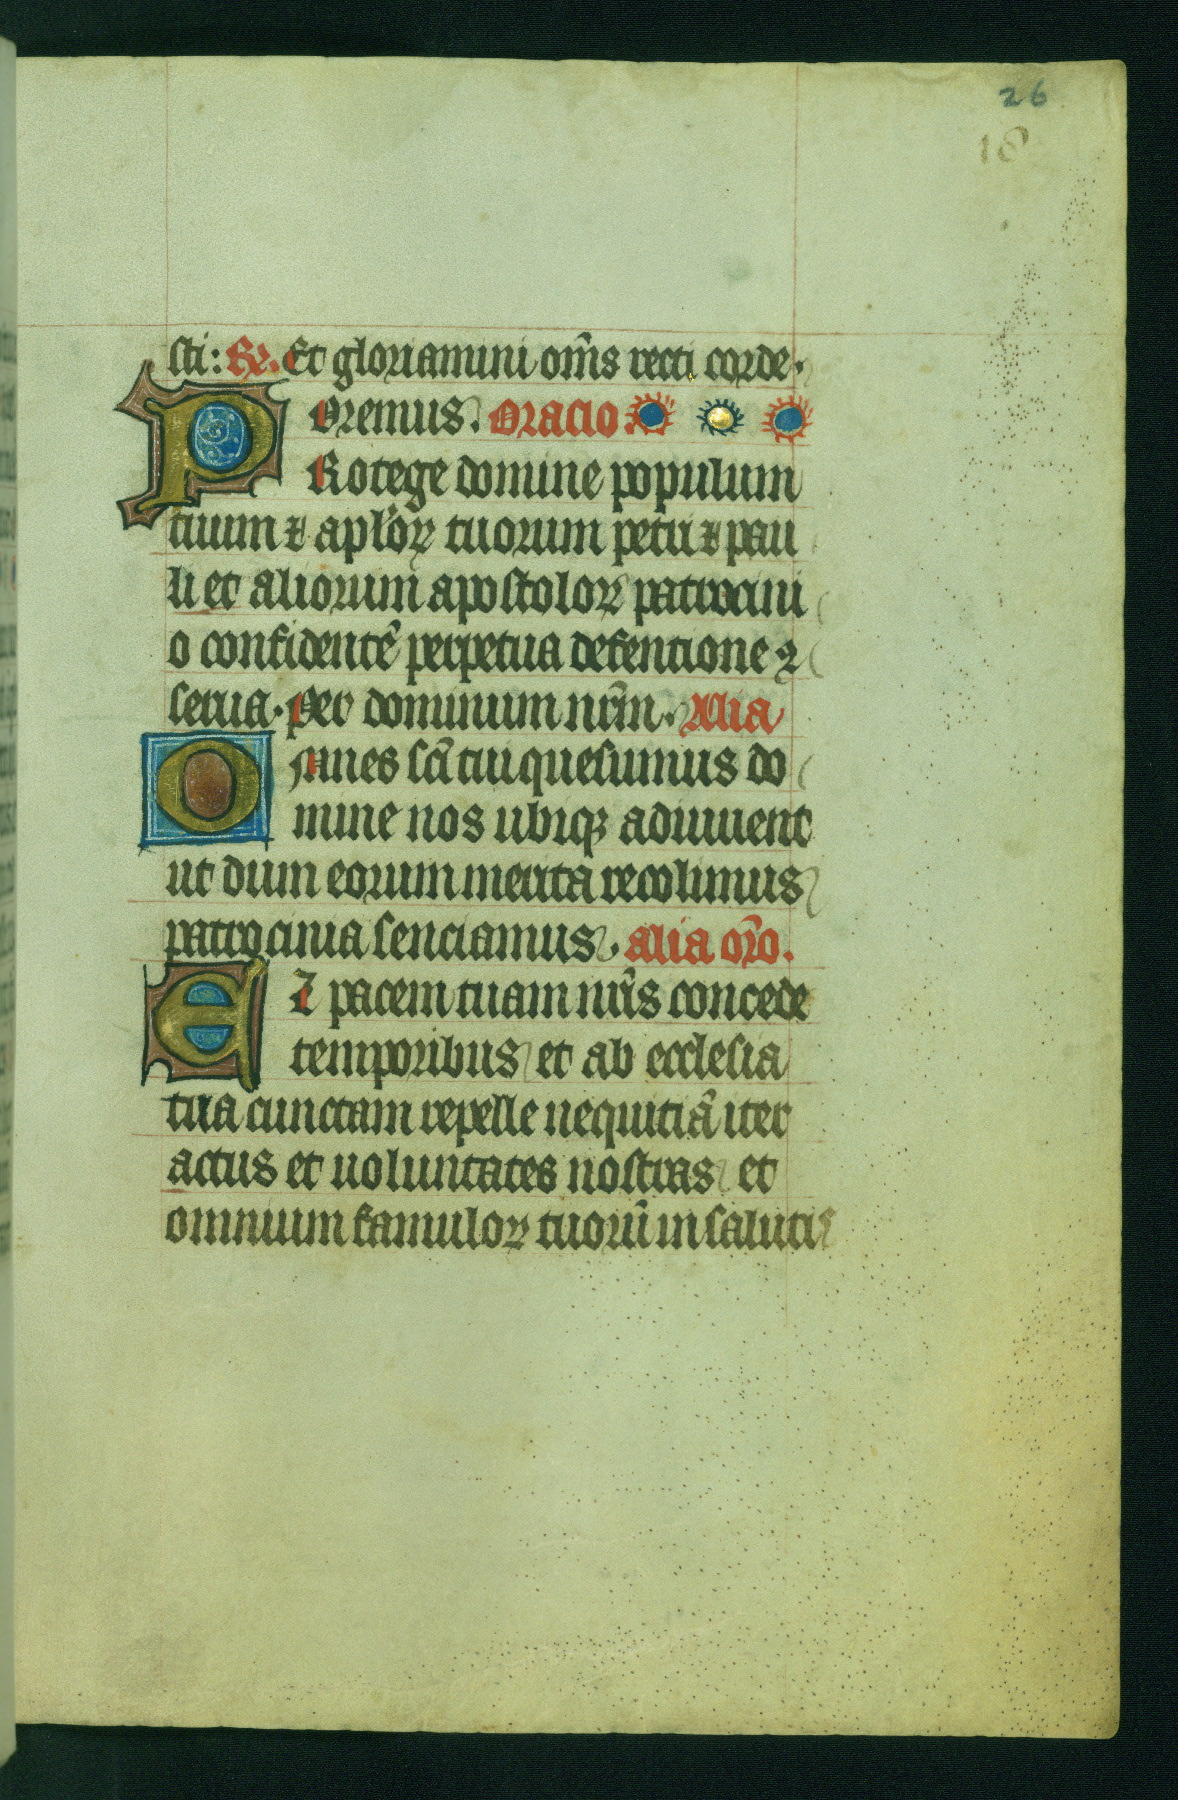 26
18
sti: R. Et gloriamini om̄s recti corde.
Oremus. Oracio.
PRotege domine populum
tuum ⁊ aplōꝝ tuorum petri ⁊ pau
li et aliorum apostoloꝝ patrocini
o confidentē perpetua defentione ꝯ
serua. Per dominum nr̄m. Alia
Omnes sc̄i tui quesumus do
mine nos ubiqꝫ adiuuent
ut dum eorum merita recolimus
patrocinia senciamus. alia or̄o.
Et pacem tuam nr̄is concede
temporibus et ab ecclesia
tua cunctam repelle nequitiā iter
actus et uoluntates nostras et
omnium famuloꝝ tuorū in salutis